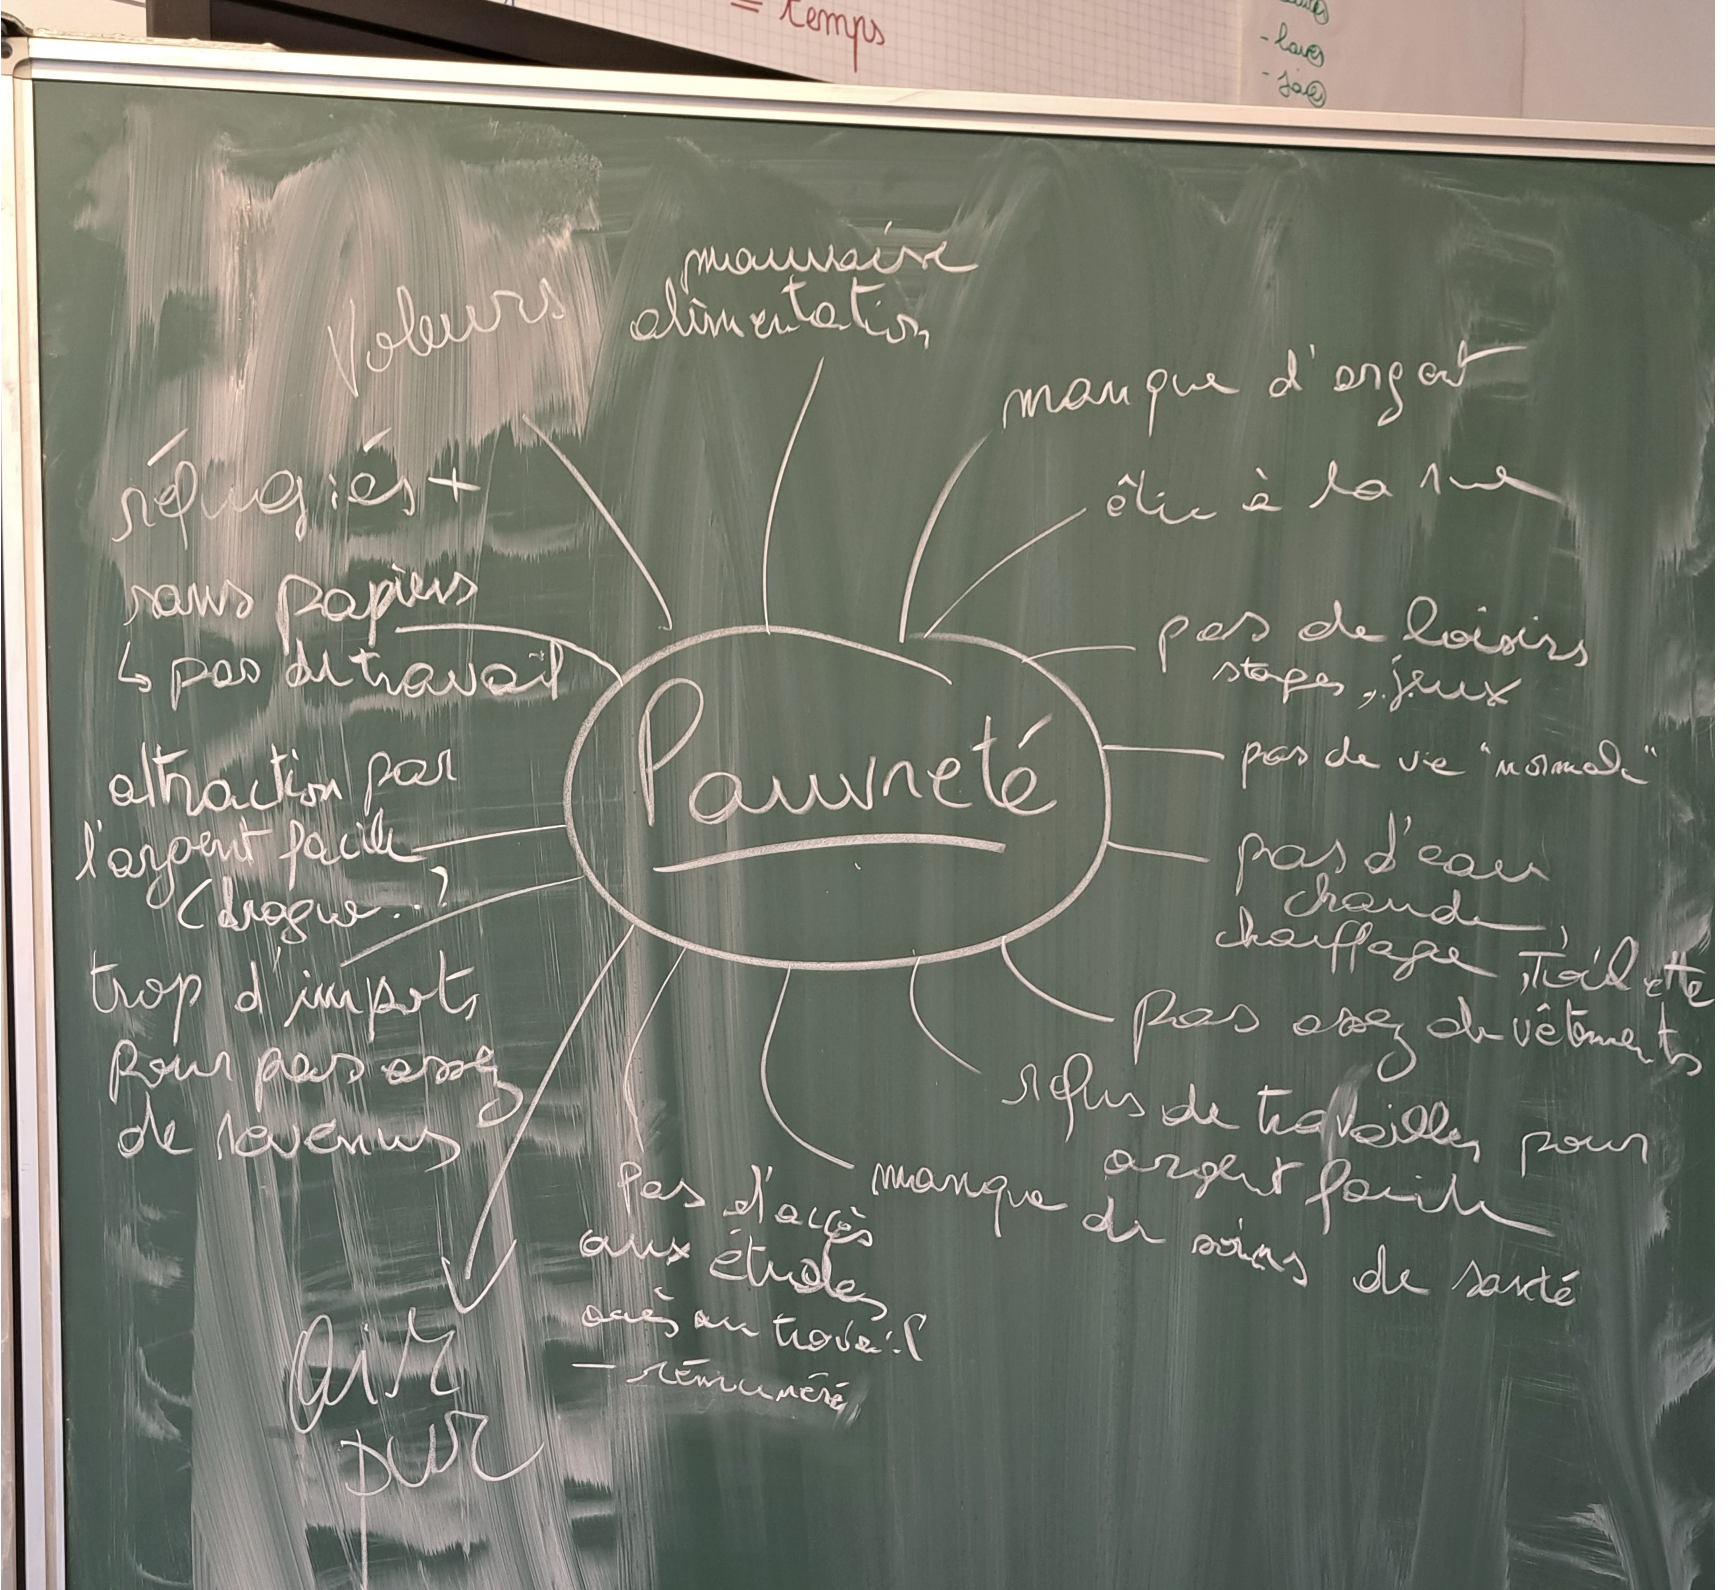 = temps
- lave
- joie
voleurs
mauvaise
alimentation
manque d'argent
être à la rue
pas de loisirs
stages, jeux
pas de vie "normale"
pas d'eau
chaude,
chauffage, toilette
pas assez de vêtements
refus de travailler pour
argent facile
manque de soins de santé
pas d'accès
aux études
accès au travail
- rémunéré
air
pur
trop d'impots
pour pas assez
de revenus
attraction par
l'argent facile
(drogue..?
réfugiés +
sans papiers
↳ pas de travail
Pauvreté